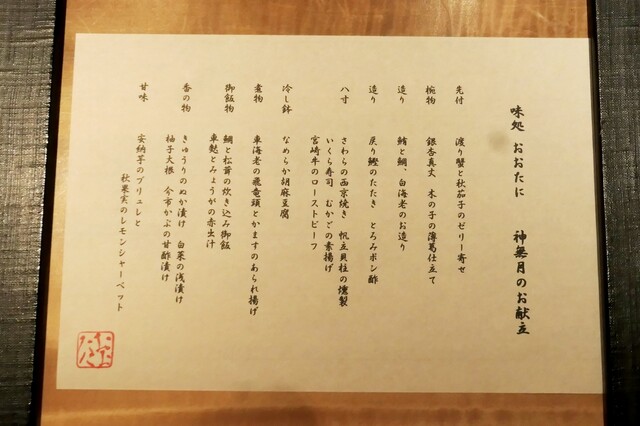 味処 おおたに 神無月のお献立
先付 渡り蟹と秋茄子のゼリー寄せ
椀物 銀杏真丈 木の子の薄葛仕立て
造り 鮪と鯛、白海老のお造り
造り 戻り鰹のたたき とろみポン酢
八寸 さわらの西京焼き 帆立貝柱の燻製
いくら寿司 むかごの素揚げ
宮崎牛のローストビーフ
冷し鉢 なめらか胡麻豆腐
煮物 車海老の飛竜頭とかますのあられ揚げ
御飯物 鯛と松茸の炊き込み御飯
車麩とみょうがの赤出汁
香の物 きゅうりのぬか漬け 白菜の浅漬け
柚子大根 今市かぶの甘酢漬け
甘味 安納芋のブリュレと
秋果実のレモンシャーベット